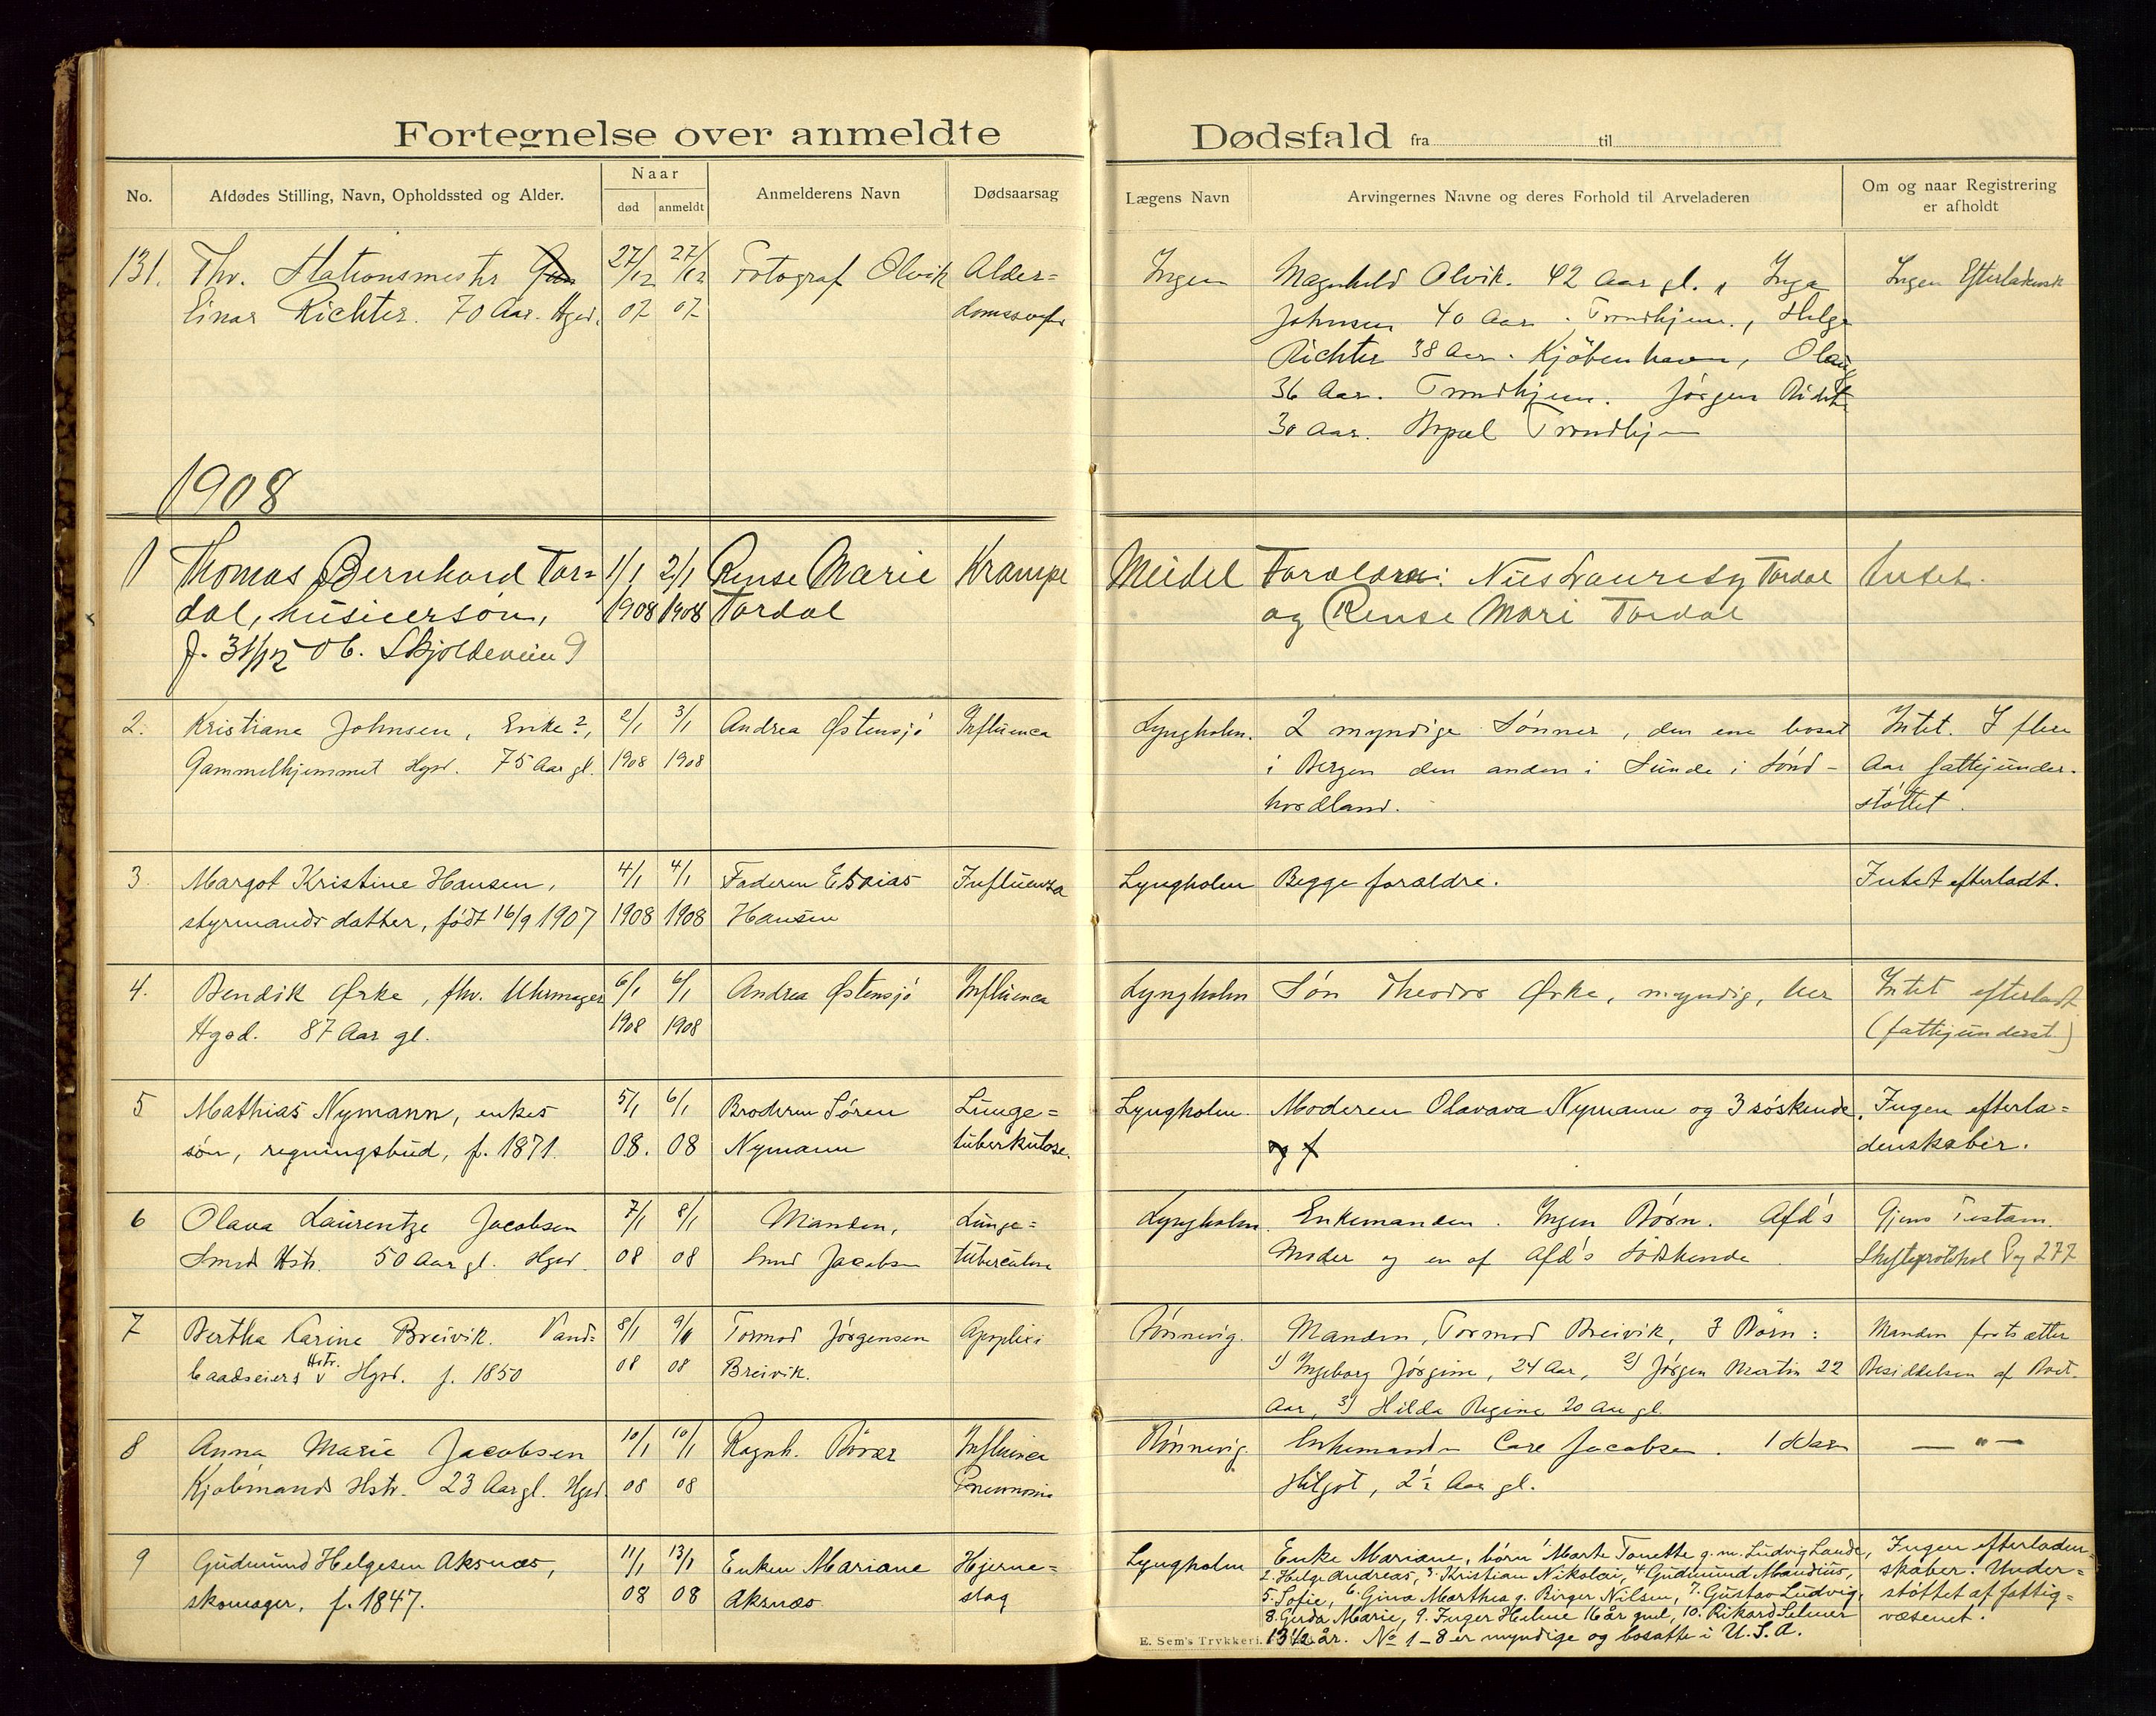 Fortegnelse over anmeldte Dødsfald fra til
No. Afdødes Stilling, Navn, Opholdssted og Alder. Naar død anmeldt Anmelderens Navn Dødsaarsag Lægens Navn Arvingernes Navne og deres Forhold til Arveladeren Om og naar Registrering er afholdt
131. Thv. Stationsmester 27/12 27/12 Fotograf Olvik Alder= Ingen Magnhild Olvik. 42 Aar gl., Inga Ingen Efterladensk
Einar Richter. 70 Aar. Hgsd. 07 07 Johnsen 40 Aar. Trondhjem., Helge
Richter 38 Aar. Kjöbenhavn, Olaug
36 Aar. Trondhjem. Jörgen Richt
30 Aar. Trondhj
1908
1 Thomas Bernhard Tor= 1/1 2/1 Rense Marie Krampe Meidel Forældre: Nils Lauritz Tordal Intet.
dal, 1908 1908 Tordal og Rense Mari Tordal
f. 31/12 06. Skjoldeveien 9
2. Kristiane Johnsen, Enke?, 2/1 3/1 Andrea Østensjö Influenca Lyngholm. 2 myndige Sönner, den ene bosat Intet. I flere
Gammelhjemmet Hgsd. 75 Aar gl. 1908 1908 i Bergen den anden i Sunde i Sönd- Aar fattigunder-
hordland. stöttet.
3. Margot Kristine Hansen, 4/1 4/1 Faderen Esaias Influenza Lyngholm Begge forældre. Intet efterladt.
styrmands datter, født 16/9 1907 1908 1908 Hansen
4. Bendik Ørke, fhv. Uhrmager 6/1 6/1 Andrea Østensjö Influenca Lyngholm Sön Theodor Ørke, myndig, her Intet efterladt
Hgsd. 87 Aar gl. 1908 1908 (fattigunderst.)
5 Mathias Nymann, enkes 5/1 6/1 Broderen Søren Lunge= Lyngholm. Moderen Olavava Nymann og 3 søskende. Ingen efterla=
søn, regningsbud, f. 1871. 08. 08 Nymann tuberkulose. og f denskaber.
6 Olava Laurentze Jacobsen 7/1 8/1 Manden, Lunge= Lyngholm. Enkemanden. Ingen Börn. Afd's Gjens. Testam.
Smed Hstr. 50 Aar gl. Hgsd. 08 08 Smed Jacobsen tuberculose Moder og en af Afd's Södskende Skifteprotokol Pag 277
7 Bertha Karine Breivik. Vand= 8/1 9/1 Tormod Jörgensen Apoplexi Rönnevig. Manden, Tormod Breivik, 3 Börn: Manden fortsætter
baadseiers Hstr. Hgsd. f. 1850 08 08 Breivik. 1) Ingeborg Jörgine, 24 Aar, 2) Jörgen Martin 22 Besiddelsen af Boet.
Aar, 3) Hilda Regine 20 Aar gl.
8 Anna Marie Jacobsen 10/1 10/1 Ragnh. Influenca Rönnevig. Enkemanden Jacobsen. 1 Barn — " —
Kjöbmands Hstr. 23 Aar gl. Hgsd. 08 08 Pneumoni 2½ Aar gl.
9 Gudmund Helgesen Aksnæs, 11/1 13/1 Enken Mariane Hjerne= Lyngholm Enke Mariane, børn 1 Marte Tonette g. m. Ludvig Lande, Ingen efterladen=
skomager, f. 1847. 08 08 Aksnæs slag 2. Helge Andreas, 3. Kristian Nikolai, 4 Gudmund Mandius, skaber. Under=
5. Sofie, 6. Gina Marthea g. Birger Nilsen, 7. Gustav Ludvig, støttet af fattig=
8. Gerda Marie, 9. Inger Heline 16 år gml, 10. Rikard Selmer væsenet.
13 1/2 år. No 1-8 er myndige og bosatte i U. S. A.
E. Sem's Trykkeri.